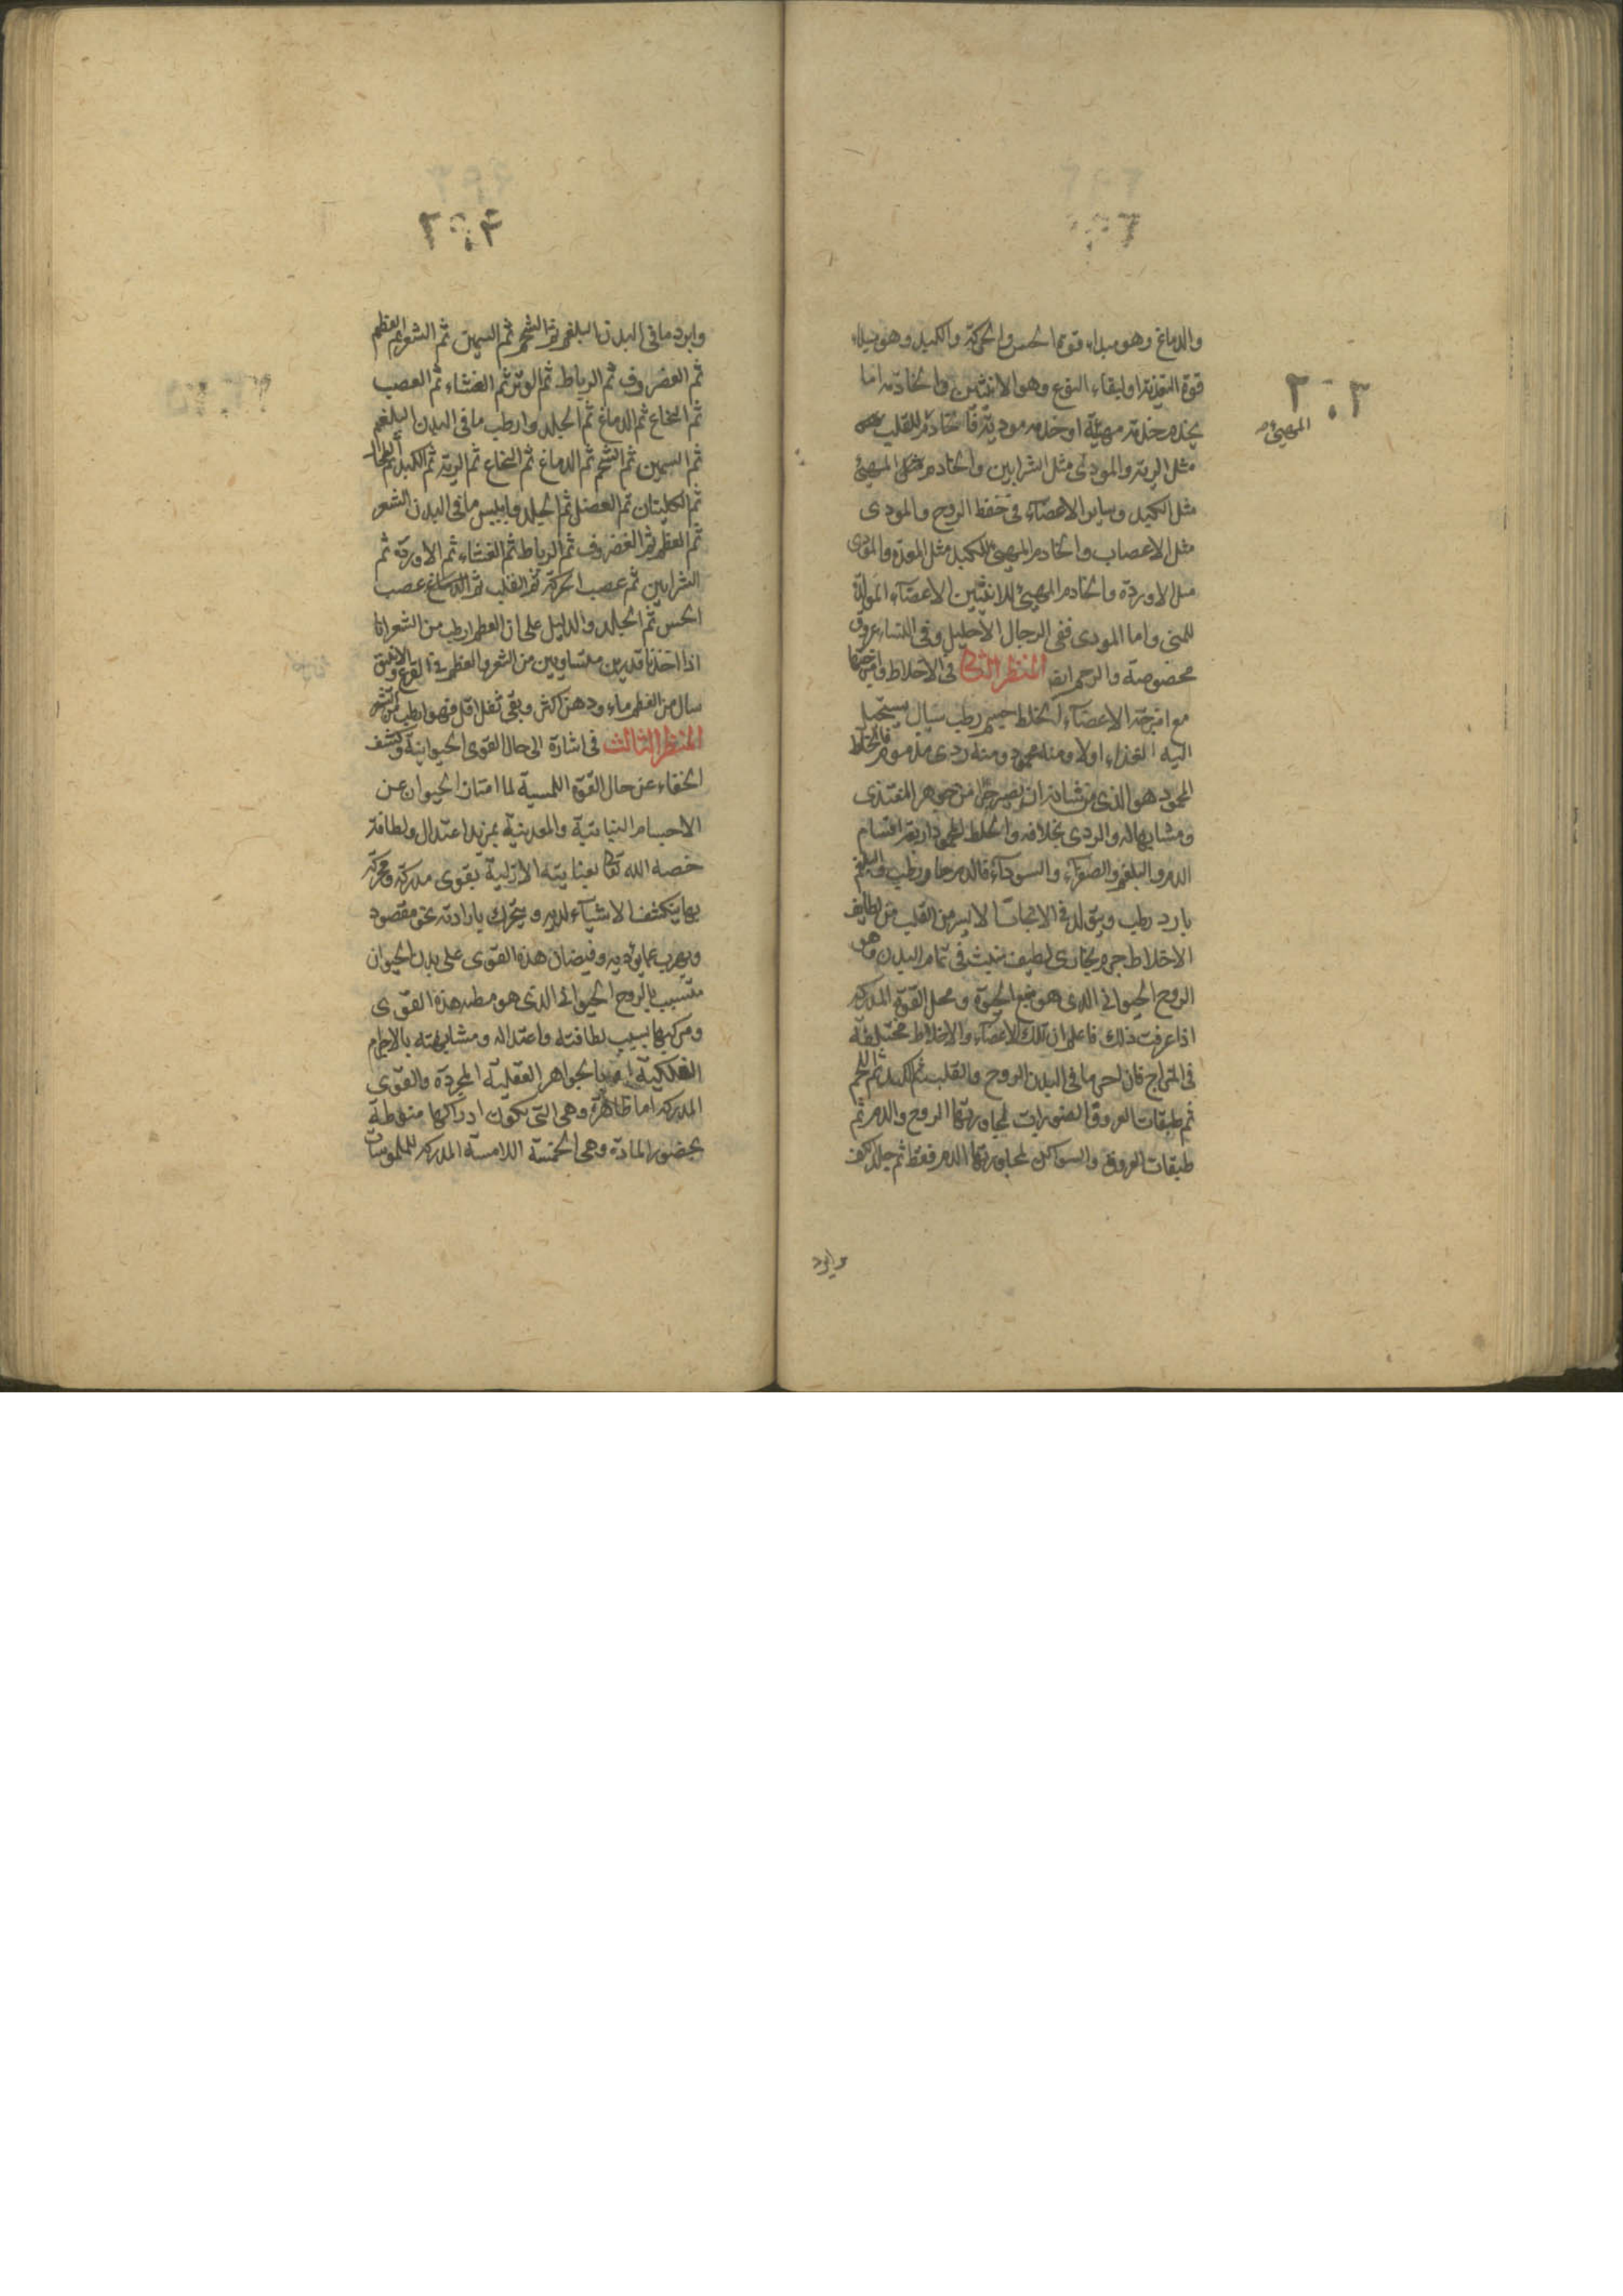 والدماغ وهو مبداء قوة الحس والحركة والكبد وهو مبداء
قوة التغذية او لبقاء النوع وهو الانثيين والخادمة اما
يخدم خدمة مهيئة او خدمة مودية فالخادم للقلب
المهيئ
مثل الرية والمودى مثل الشرايين والخادم المهيئ
مثل الكبد وساير الاعضاء فى حفظ الروح والمودى
مثل الاعصاب والخادم المهيئ للكبد مثل المعدة والمودى
مثل الاوردة والخادم المهيئ للانثيين الاعضاء المولدة
للمنى واما المودى ففى الرجال الاحليل وفى النساء عروق
مخصوصة والرحم ايضا المنظر الثانى فى الاخلاط وامزجتها
مع امزجة الاعضاء الخلط جسم رطب سيال يستحيل
اليه الغذاء اولا ومنه محمود ومنه ردى مذموم فالخلط
المحمود هو الذى من شانه ان يصير جزا من جوهر المغتذى
ومشابها له والردى بخلافه والخلط المحمود اربعة اقسام
الدم والبلغم والصفراء والسوداء فالدم حار رطب والبلغم
بارد رطب ويتولد فى الايسر من القلب من لطايف
الاخلاط جرم بخارى لطيف ينبث فى تمام البدن وهو
الروح الحيوانى الذى هو منبع الحيوة ومحل القوة المدركة
اذا عرفت ذلك فاعلم ان تلك الاعضاء والاخلاط مختلفة
فى المزاج فان احر ما فى البدن الروح والقلب ثم الكبد ثم اللحم
ثم طبقات العروق الضوارب لمجاورتها الروح والدم ثم
طبقات العروق السواكن لمجاورتها الدم فقط ثم جلد الكف
وابرد
وابرد ما فى البدن البلغم ثم الشحم ثم السمين ثم الشعر ثم العظم
ثم الغضروف ثم الرباط ثم الوتر ثم الغشاء ثم العصب
ثم النخاع ثم الدماغ ثم الجلد وارطب ما فى البدن البلغم
ثم السمين ثم الشحم ثم الدماغ ثم النخاع ثم الرية ثم الكبد ثم الطحال
ثم الكليتان ثم العضل ثم الجلد وايبس ما فى البدن الشعر
ثم العظم ثم الغضروف ثم الرباط ثم الغشاء ثم الاوردة ثم
الشرايين ثم عصب الحركة ثم القلب ثم عصب
الحس ثم الجلد والدليل على ان العظم ارطب من الشعر انا
اذا اخذنا قدرين متساويين من الشعر والعظم فى القرع والانبيق
سال من العظم ماء ودهن اكثر وبقى ثفل اقل فهو ارطب من الشعر
المنظر الثالث فى اشارة الى حال القوى الحيوانية وكشف
الخفاء عن حال القوة اللمسية لما امتاز الحيوان عن
الاجسام النباتية والمعدنية بمزيد اعتدال ولطافة
خصه الله تعالى بعنايته الازلية بقوى مدركة ومحركة
بها ينكشف الاشياء لديه ويتحرك بارادته نحو مقصود
ويهرب عما يؤديه وفيضان هذه القوى على بدن الحيوان
متسبب بالروح الحيوانى الذى هو مطية هذه القوى
ومركبها بسبب لطافته واعتداله ومشابهته بالاجرام
الفلكية بالجواهر العقلية المجردة والقوى
المدركة اما ظاهرة وهى التى يكون ادراكها منوطة
بحضور المادة وهى الخمسة اللامسة المدركة للملموسات